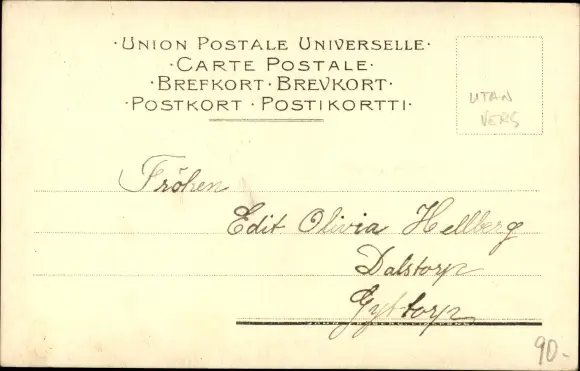 ·UNION POSTALE UNIVERSELLE·
·CARTE POSTALE·
·BREFKORT·BREVKORT·
·POSTKORT·POSTIKORTTI·
UTAN
VERS
Fröken
Edit Olivia Hellberg
Dalstorp
Gyttorp
90-